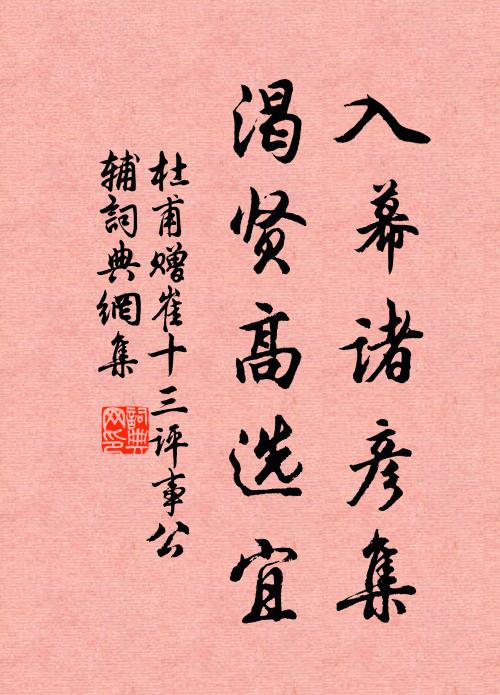 入幕诸彦集
渴贤高选宜
杜甫赠崔十三评事公
辅詞典網集
詞典网印